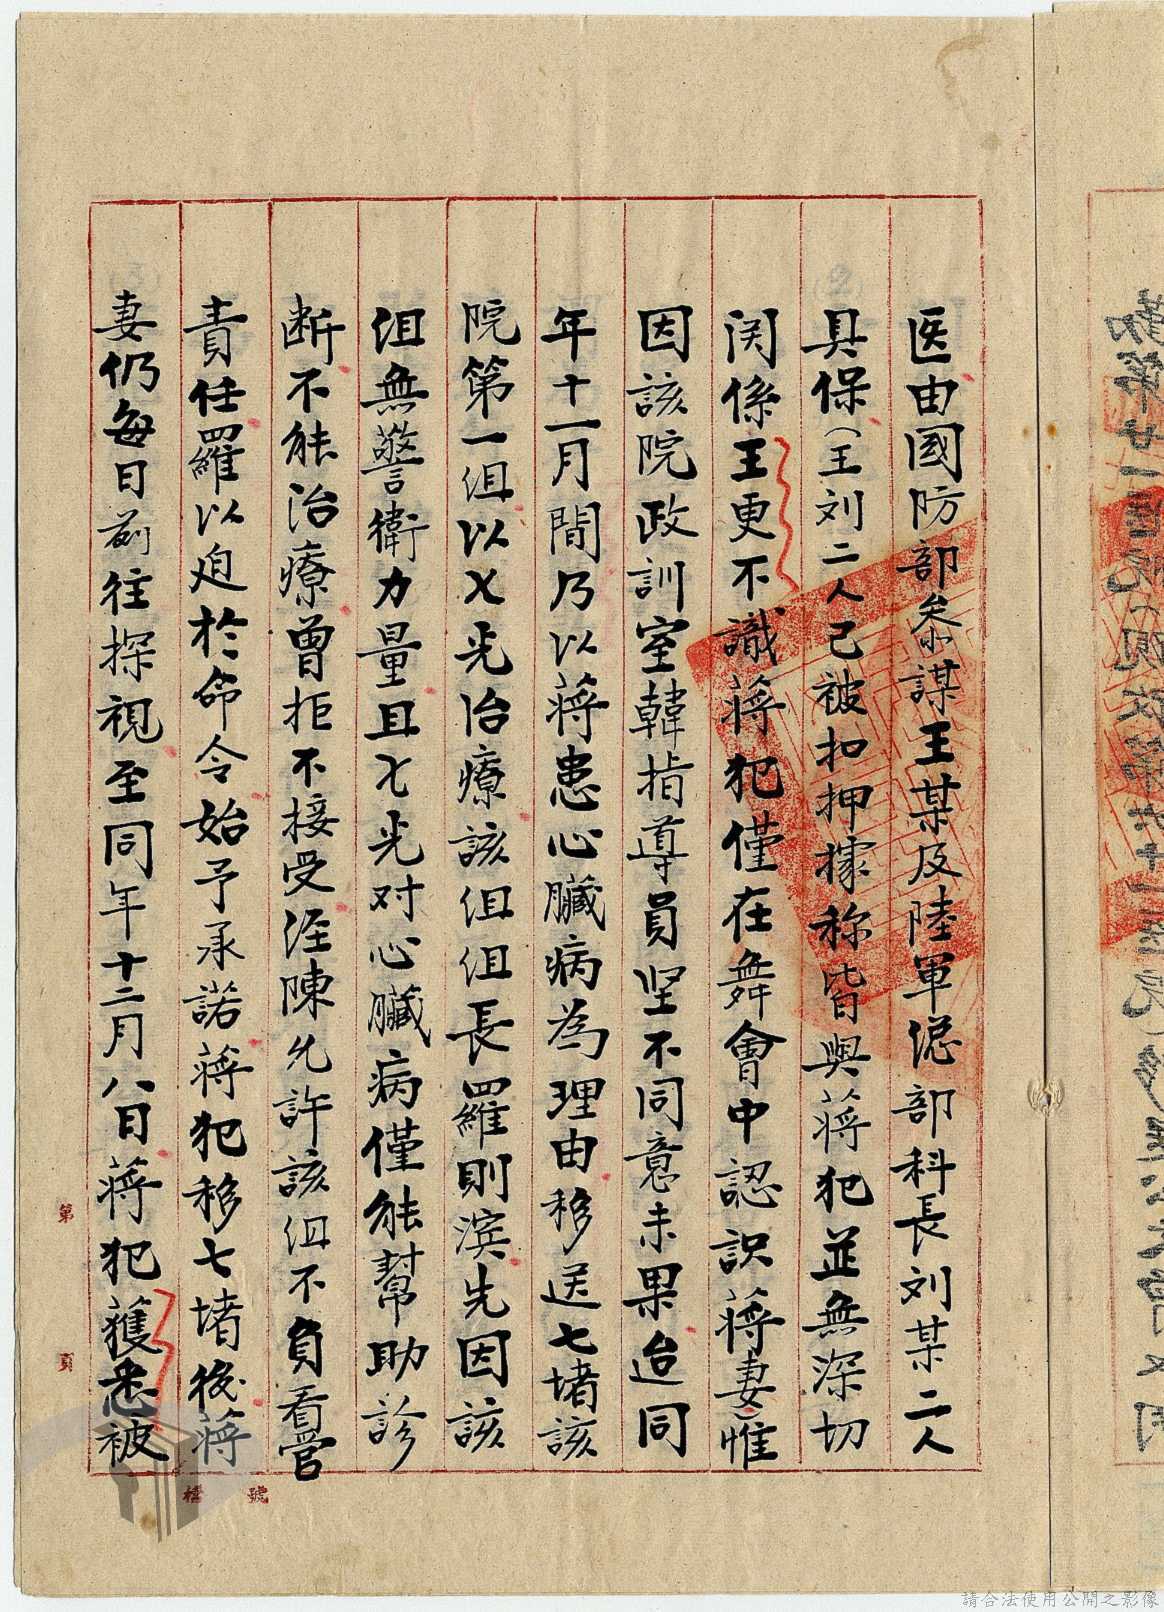 医由國防部叅謀王某及陸軍総部科長刘某二人
具保（王刘二人已被扣押據称皆與蒋犯並無深切
関係王更不識蒋犯僅在舞會中認识蒋妻惟
因該院政訓室韓指導員坚不同意未果迨同
年十一月間乃以蒋患心臟病為理由移送七堵該
院第一组以X光治療該组组長羅則滨先因該
组無警衛力量且X光对心臟病僅能幫助診
断不能治療曾拒不接受 陳允許該组不負看管
責任羅以迫於命令始予承諾蒋犯移七堵後蒋
妻仍每日前往探視至同年十二月八日蒋犯獲悉被
第 頁
檔 號
請合法使用公開之影像